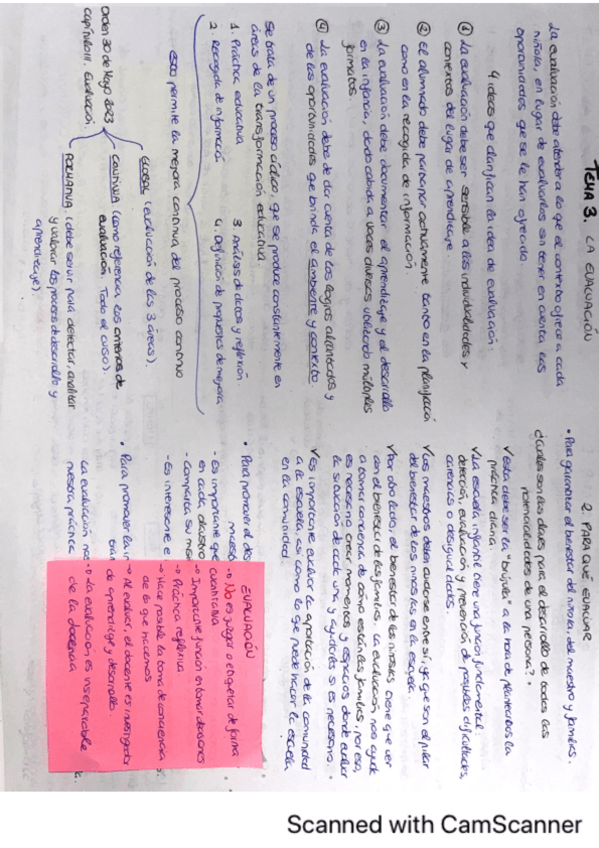 TEMA 3. LA EVALUACIÓN
La evaluación debe atender a lo que el contexto ofrece a cada
niño/a, en lugar de evaluarlos sin tener en cuenta las
oportunidades que se le han ofrecido.
4 ideas que clarifican la idea de evaluación:
① La evaluación debe ser sensible a las individualidades y
contextos del lugar de aprendizaje.
② El alumnado debe participar activamente tanto en la planificación
como en la recogida de información.
③ La evaluación debe documentar el aprendizaje y el desarrollo
en la infancia, dando cabida a voces diversas utilizando múltiples
formatos.
④ La evaluación debe de dar cuenta de los logros alcanzados y
de las oportunidades que brinda el ambiente y contexto.
Se trata de un proceso cíclico, que se produce constantemente en
áreas de la transformación educativa
1. Práctica educativa
3. Análisis de datos y reflexión
2. Recogida de información
4. Definición de propuestas de mejora
esto permite la mejora continua del proceso continuo
Orden 30 de Mayo 2023
Capítulo III. Evaluación.
GLOBAL (evaluación de las 3 áreas).
CONTINUA (como referencia los criterios de
evaluación. Todo el curso).
FORMATIVA (debe servir para detectar, analizar
y valorar los procesos de desarrollo y
aprendizaje)
2. PARA QUÉ EVALUAR
• Para garantizar el bienestar del niño/a, del maestro y familias.
¿Cuáles son las claves para el desarrollo de todas las
potencialidades de una persona?
✓ esta debe ser la "brújula" a la hora de plantearnos la
práctica diaria.
✓ La escuela infantil tiene una función fundamental:
detección, evaluación y prevención de posibles dificultades,
carencias o desigualdades.
✓ Los maestros deben cuidarse entre sí, ya que son el pilar
del bienestar de los niños/as en la escuela.
✓ Por otro lado, el bienestar de los niños/as tiene que ver
con el bienestar de las familias. La evaluación nos ayuda
a tomar conciencia de cómo están las familias, por eso,
es necesario crear momentos y espacios donde evaluar
la situación de cada una y ayudarles si es necesario.
✓ Es importante evaluar la aportación de la comunidad
a la escuela, así como lo que puede hacer la escuela
en la comunidad.
• Para promover el des
maes
- Es importante que
en cada claustro
- Comparta su
- Es interesante e
• Para promover la
La evaluación nos
nuestra práctica
EVALUACIÓN
→ No es juzgar o etiquetar de forma
cuantitativa
→ Importante función en tomar decisiones
→ Práctica reflexiva
→ Hace posible la toma de conciencia
de lo que hacemos
→ Al evaluar, el docente es investigador
de aprendizaje y desarrollo.
→ La evaluación es inseparable
de la docencia
Scanned with CamScanner